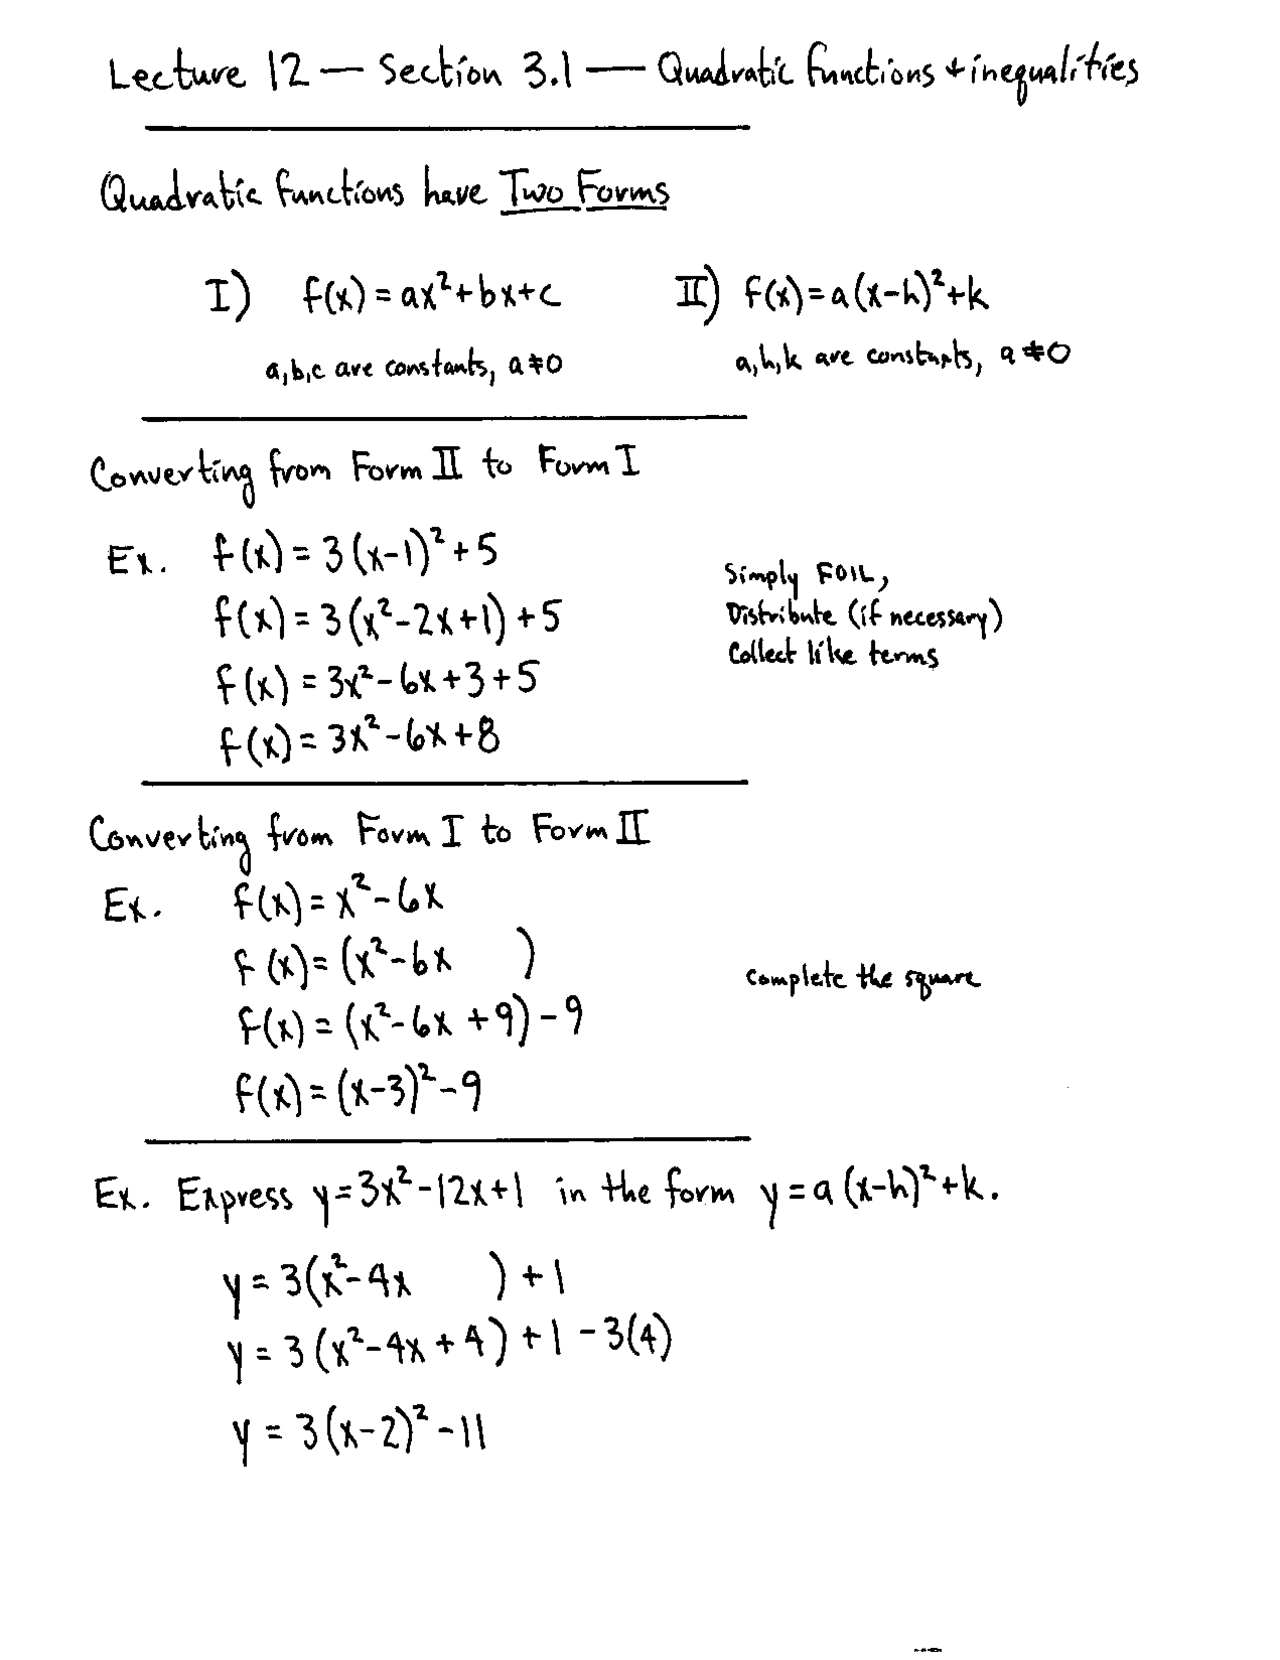 Lecture 12 — Section 3.1 — Quadratic functions + inequalities
Quadratic functions have Two Forms
I) f(x) = ax²+bx+c II) f(x)=a(x-h)²+k
a,b,c are constants, a≠0 a,h,k are constants, a≠0
Converting from Form II to Form I
Ex. f(x) = 3(x-1)²+5
Simply FOIL,
f(x) = 3(x²-2x+1)+5
Distribute (if necessary)
Collect like terms
f(x) = 3x²-6x+3+5
f(x) = 3x²-6x+8
Converting from Form I to Form II
Ex. f(x) = x²-6x
f(x) = (x²-6x )
Complete the square
f(x) = (x²-6x +9) -9
f(x) = (x-3)²-9
Ex. Express y=3x²-12x+1 in the form y=a(x-h)²+k.
y = 3(x²-4x ) +1
y = 3(x²-4x+4) +1 -3(4)
y = 3(x-2)² -11